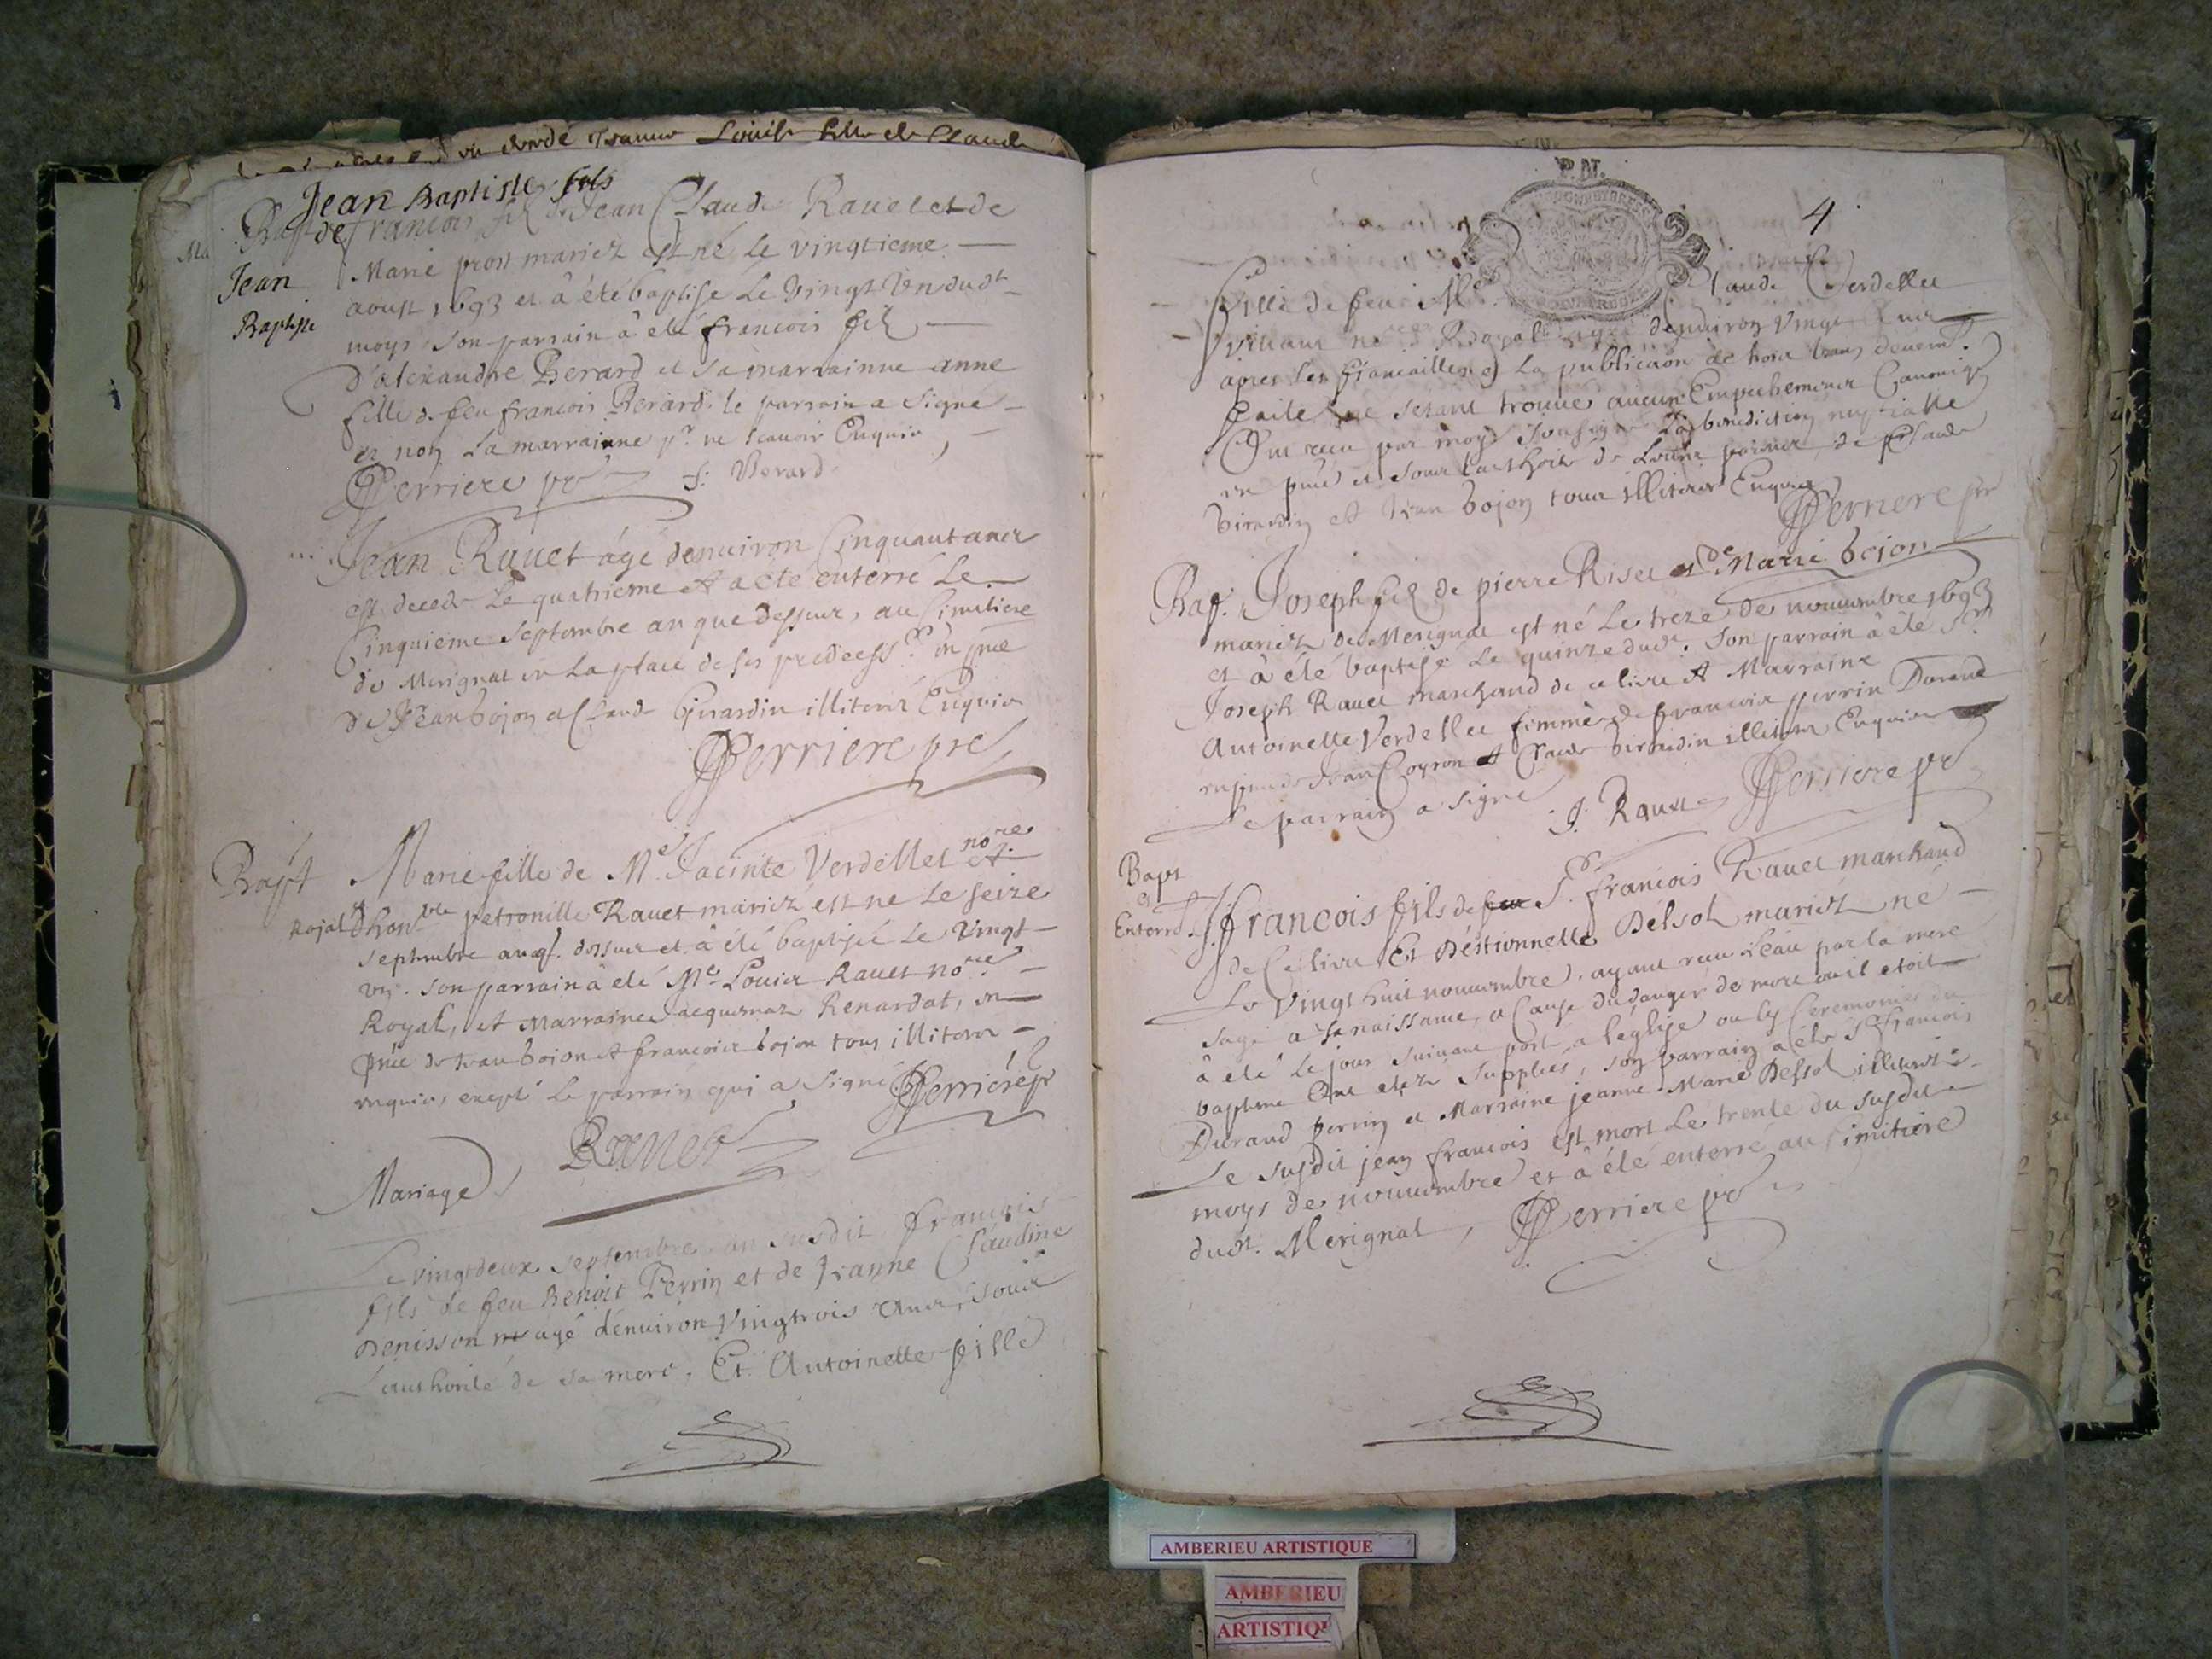 Jean Baptiste fils
Bap de francois fils de Jean Claude Rauet et de
Jean Baptiste
Marie pron mariez est né le vingtieme
aoust 1693 et à été baptise le vingt un dud.t
moys son parrain à eté francois fils
d'alexandre Berard et sa marrainne anne
fille de feu francois Berard le parrain a signé
et non la marrainne p.r ne scauoir Enquis
Perriere pr F: Berard
Jean Rauet âgé denuiron Cinquant ans
est decede le quatrieme et a été enterré le
Cinquieme septembre an que dessus, au Cimitiere
de Merignat en la place de ses predecess.rs en pnce
de Jean bojon et Claude Girardin illiteres Enquis
Perriere pre
Bapt
Marie fille de M.e Jacinte Verdellet no.re
Rojal et dhon.ble petronille Rauet mariez est ne le seize
septembre an q. dessus et à été baptisée le vingt
un. son parrain à eté M.e Louis Rauet no.re
Royal, et Marraine jacquemaz Renardat, en
pnce de Jean bojon et francois bojon tous illiteres
enquis, excepté le parrain qui a signé Perriere pr
Rauet
Mariage
Le vingtdeux septembre an susdit francois
fils de feu Benoit Perrin et de Jeanne Claudine
Denisson agé dénuiron vingtrois ans, sous
L'authorité de sa mere, Et Antoinette fille
P.M.
4
fille de feu M.e Claude Verdellet
viuant Royal agée denuiron vingt
apres les fiancailles et la publicaon de trois bans deuem.t
faite ne setant trouué aucun Empechement Canonique
Ont receu par moys soussigné la benediction nuptialle
en pnce et sous l'authorite de leurs parens, de Claude
Girardin et Jean bojon tous illiteres Enquis
Perriere pr
Bap. Joseph fils de pierre Riset et de Marie bojon
mariez de Merignat est né le treze de nouuembre 1693
et à été baptisé le quinze dud.t. Son parrain à été S.r
Joseph Rauet marchand de celieu et Marraine
Antoinette Verdellet femme de francois perrin Durand
en pnce de Jean Coyron et Claude Girardin illiteres Enquis
Le parrain a signé J. Rauet Perriere pr
Bapt
et
Enterré
J francois fils de S.r francois Rauet marchand
de Celieu Et Déstionnette Délsol mariéz né
Le vingt huit nouuembre. ayant receu l'eau par la mere
sage à sa naissance, a Cause du danger de mort ou il etoit
à eté le jour suiuant porté a l'eglise ou les Ceremonies du
baptême Ont etez supplées, son parrain a été S.r francois
Durand perrin et Marraine jeanne Marie Delsol illiterés
Le susdit jean francois est mort le trente du susdit
moys de nouuembre et à été enterré au Cimitiere
dudt. Merignat, Perriere pr
AMBERIEU ARTISTIQUE
AMBERIEU